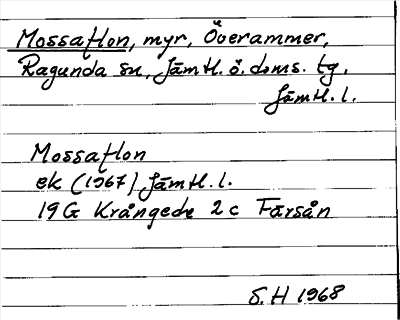 Mossaflon, myr, Överammer,
Ragunda sn, Jämtl. ö. doms. tg,
Jämtl. l.
Mossaflon
ek (1967) Jämtl. l.
19G Krångede 2c Färsån
S. H 1968